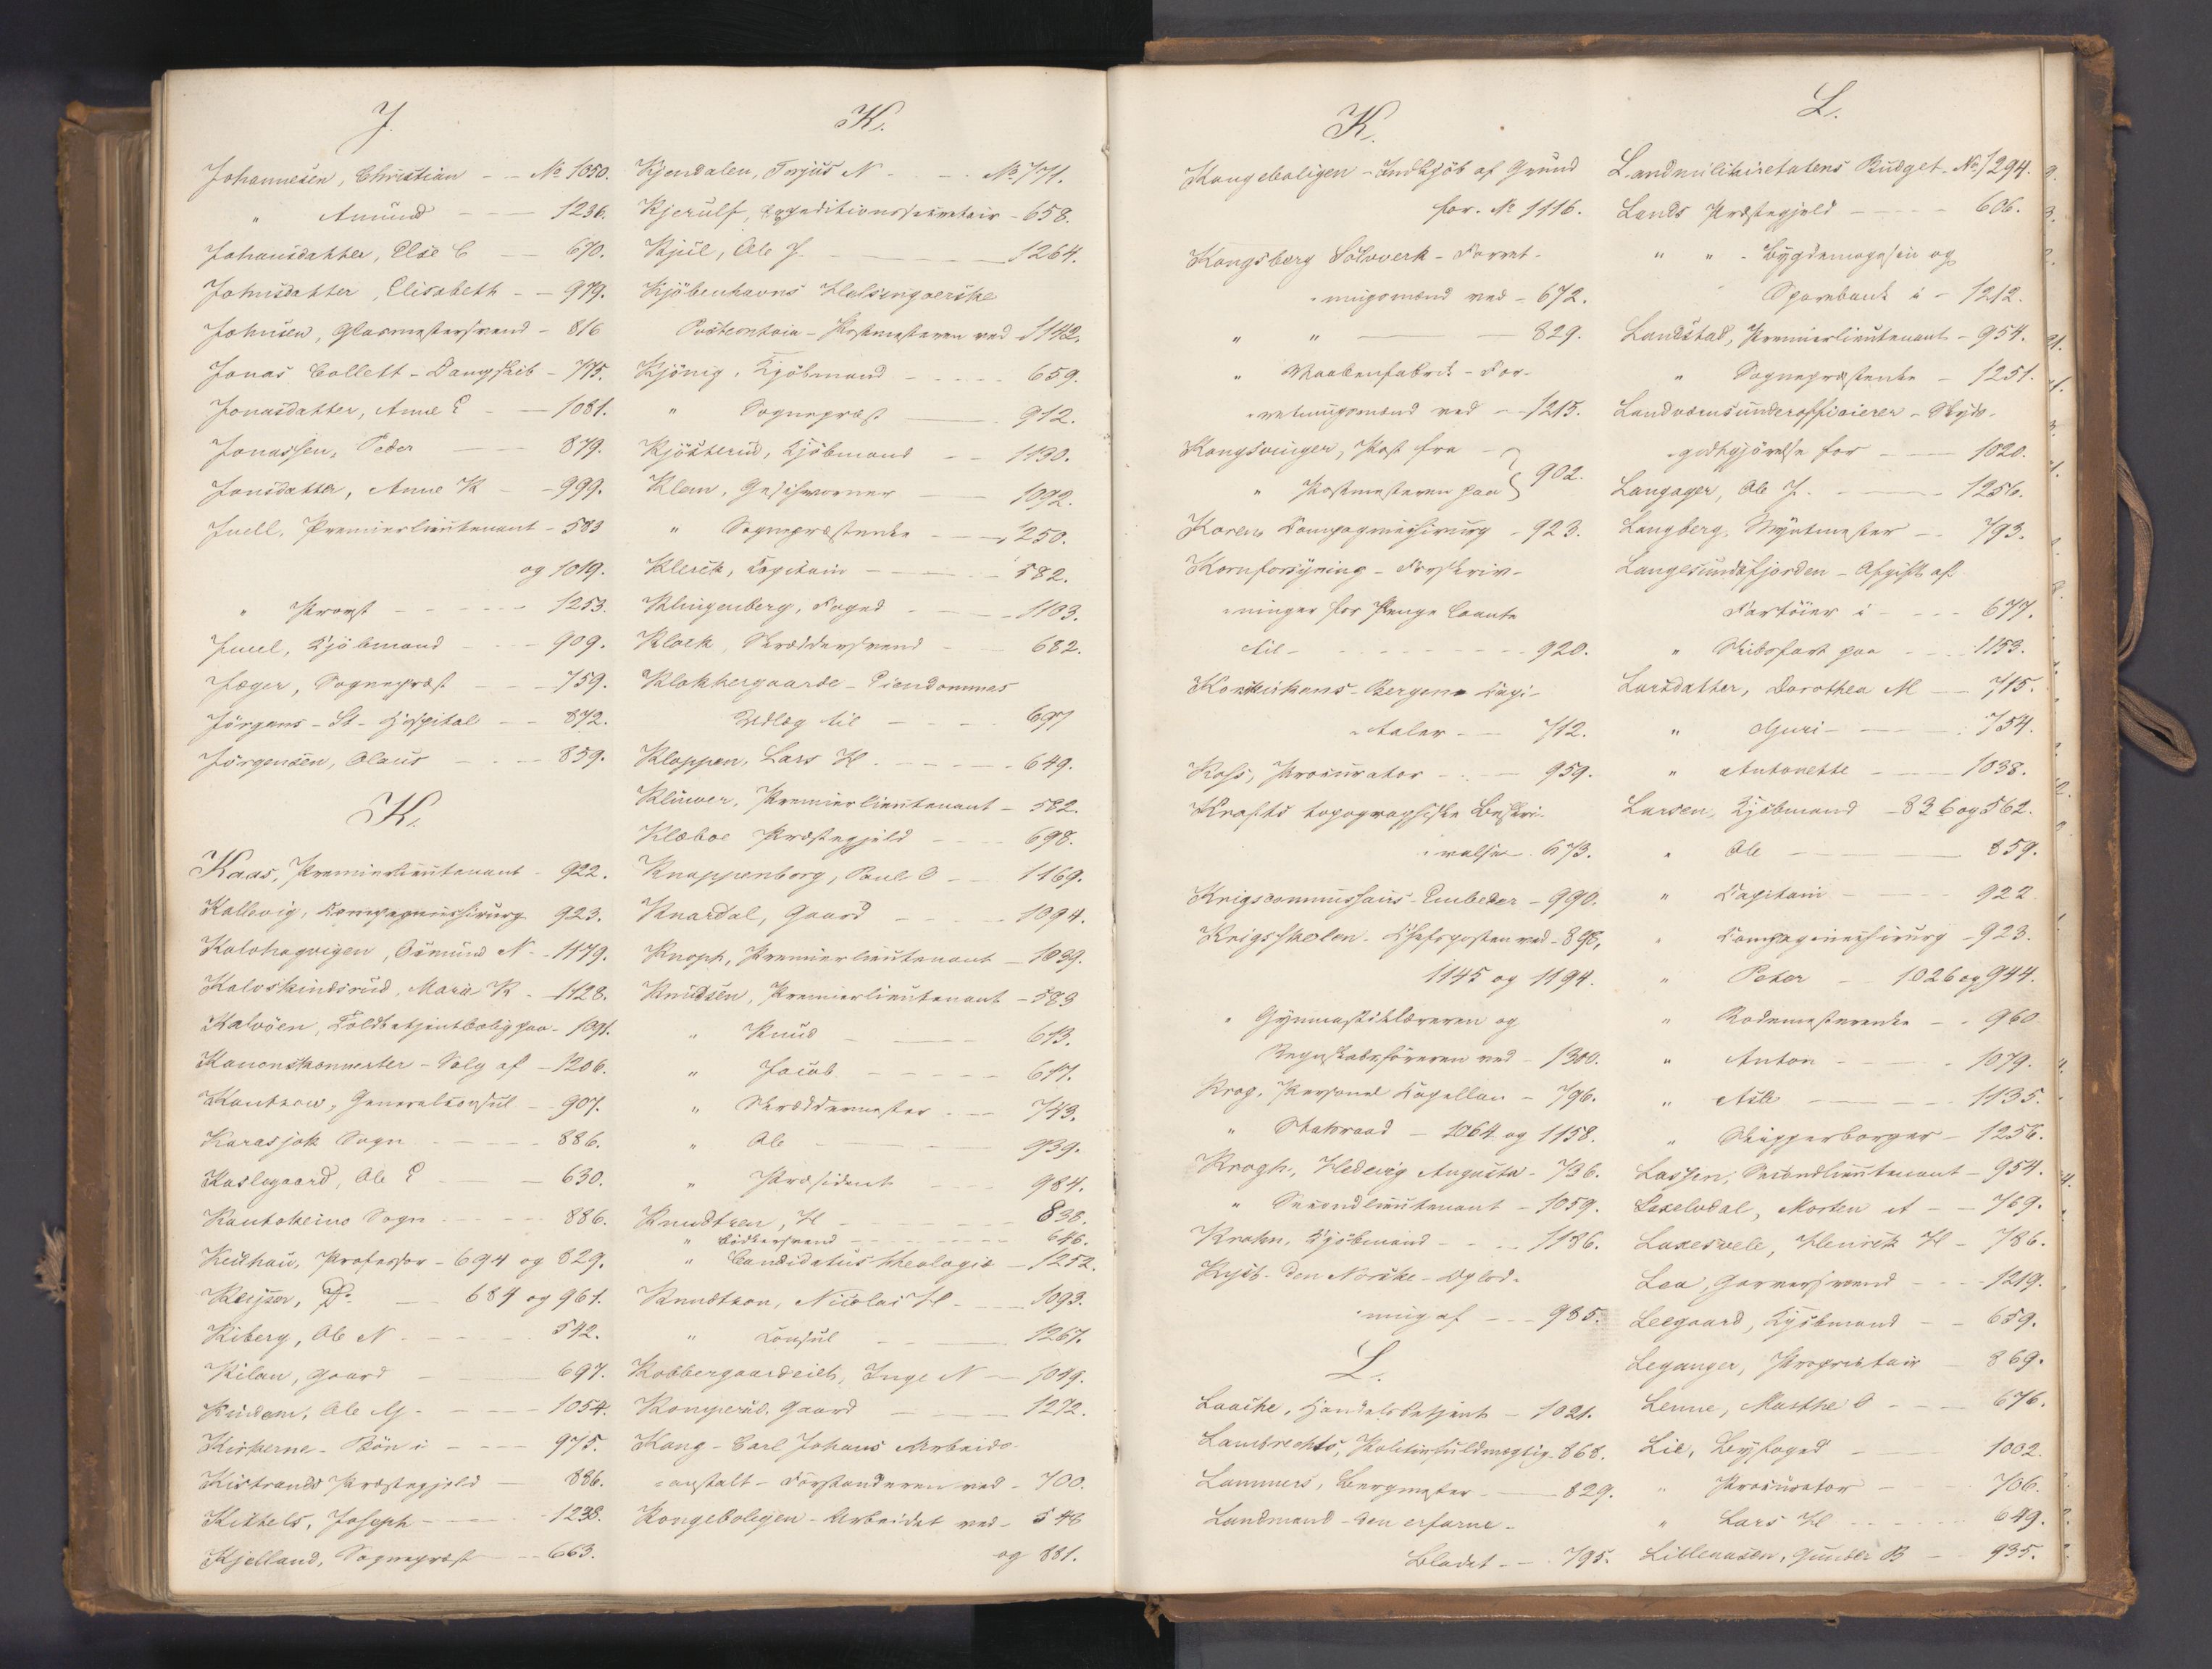 J.
Johannesen, Christian - - No 1050.
" Amund - - - 1236.
Johansdatter, Else C - - 670.
Johnsdatter, Elisabeth - - 979.
Johnsen, Glasmestersvend - 816
Jonas Collett - Dampskib - 775.
Jonasdatter, Anne E - - 1081.
Jonassen, Peder - - 879.
Jonsdatter, Anne K - - 999.
Juell, Premierlieutenant - 583
og 1019.
" Provst - - - - 1253.
Juul, Kjöbmand - - - 909.
Jæger, Sognepræst - - - 759.
Jörgens - St - Hospital - - 872.
Jörgensen, Olaus - - - 859.
K.
Kaas, Premierlieutenant - 922.
Kallevig, Compagniechirurg 923.
Kalohagvigen, Osmund N - 1179.
Kalvskindsrud, Maria K - 1128.
Kalvöen, Toldbetjentbolig paa - 1091.
Kanonskonnerter - Salg af - 1206.
Kantzow, Generalconsul - - 907.
Karasjok Sogn - - - - 886.
Kaslegaard, Ole E - - 630.
Kautokeino Sogn - - - 886.
Keilhau, Professor - 694 og 829.
Keyser, Do - - 684 og 961.
Kiberg, Ole N - - - - 542.
Kilan, Gaard - - - 697.
Ole G - - - - 1054.
Kirkerne - Bön i - - - 975.
Kistrands Præstegjeld - - 886.
Kittels, Joseph - - - - 1238.
Kjelland, Sognepræst - - 663.
K.
Kjendalen, Torjus N - - - No 771.
Kjerulf, Expeditionssecretair - 658.
Kjul, Ole J. - - - - 1264.
Kjöbenhavns Helsingoerske
Postcontoir - Postmesteren ved - 1142.
Kjönig, Kjöbmand - - - - - 659.
" Sognepræst - - - 912.
Kjösterud, Kjöbmand - - - 1130.
Klem, Geschworner - - 1092.
" Sognepræstenke - - - 1250.
Klerck, Capitain - - - - 582.
Klingenberg, Foged - - - 1103.
Klock, Skræddersvend - - - 682.
Klokkergaarde - Eiendommes
Udlæg til - - - - 697
Kloppen, Lars H. - - - - - 649.
Klüwer, Premierlieutenant - 582.
Klæboe Præstegjeld - - - - 698.
Knappenborg, Poul O - - 1169.
Knardal, Gaard - - - - 1094.
Knoph, Premierlieutenant - 1039.
Knudsen, Premierlieutenant - 583
" Knud - - - - 613.
" Jacob - - - - - 617.
" Skræddermester - - - 743.
" Ole - - - - 939.
" Præsident - - - - 984.
Knudtzen, H - - - - - 838.
" Bödkersvend - - - - - 646.
" Candidatus theologiæ - 1252.
Knudtzon, Nicolai H - - - 1093.
" Consul - - - - 1267.
Kobbergaardeich, Inge N - - 1049.
Komperud, Gaard - - - - 1272.
Kong - Carl Johans Arbeids-
=anstalt - Forstanderen ved - 700.
Kongeboligen - Arbeidet ved - 548
og 881.
K.
Kongeboligen - Indkjöb af Grund
for. No 1116.
Kongsberg Sölvverk - Forret-
=ningsmænd ved - 672.
" " - - - 829.
" Vaabenfabrik - For-
=retningsmænd ved - - 1215.
Kongsvinger, Post fra - }
" Postmesteren paa } 902.
Koren, Compagniechirurg - 923.
Kornforsyning - Forskriv-
=ninger for Penge laante
til - - - - - - - - - 920.
Bergens Capi-
=taler - - - 712.
Koss, Procurator - - - - 959.
Krafts topographiske Beskri-
=velse - 673.
Krigscommissairs-Embeder - 990.
Krigsskolen - Chefsposten ved - 898,
1145 og 1194.
" Gymnastiklæreren og
Regnskabsföreren ved - 1300.
Krog, Personel Capellan - 796.
" Statsraad - 1064 og 1158.
Krogh, Hedevig Augusta - 736.
" Secondlieutenant - 1059.
Krohn, Kjöbmand - - - - 1186.
Kyst - den Norske - Oplod-
=ning af - - - 985.
L.
Laache, Handelsbetjent - 1021.
Lambrechts, Politiefuldmægtig - 868.
Lammers, Bergmester - - 829.
Landmand - den erfarne -
Bladet - - - 795.
L.
Landmilitairetatens Budget - No 1294.
Lands Præstegjeld - - - - - 606.
" " - Bygdemagasin og
Sparebank i - 1212.
Landstad, Premierlieutenant - 954.
" Sognepræstenke - 1251.
Landværnsunderofficierer - Skyds-
=godtgjörelse for - - - - 1020.
Langager, Ole J. - - - - 1256.
Langberg, Myntmester - - 793.
Langesundsfjorden - Afgift af
Fartöier i - - - - 677.
" Skibsfart paa - - - - 1153.
Larsdatter, Dorothea M - - 715.
" Guri - - - - - 754.
" Antonette - - - - 1038.
Larsen, Kjöbmand - 836 og 562.
" Ole - - - - 859.
" Capitain - - - - 922
" Compagniechirurg - 923.
" Peter - - 1026 og 944.
" Rodemesterenke - - 960
" Anton - - - - - 1079.
" Atle - - - - - 1135.
" Skipperborger - 1256.
Lassen, Secondlieutenant - 954.
Laxelvdal, Morten A - - 769.
Laxesvele, Henrik H - 786.
Lea, Garversvend - - - - 1219.
Leegaard, Kjöbmand - - 659.
Leganger, Proprietair - 869.
Lenne, Marthe O - - - - 676.
Lie, Byfoged - - - 1002.
" Procurator - - - - 706.
" Lars H - - - - - 649.
Lilleaasen, Gunder B - - 935.